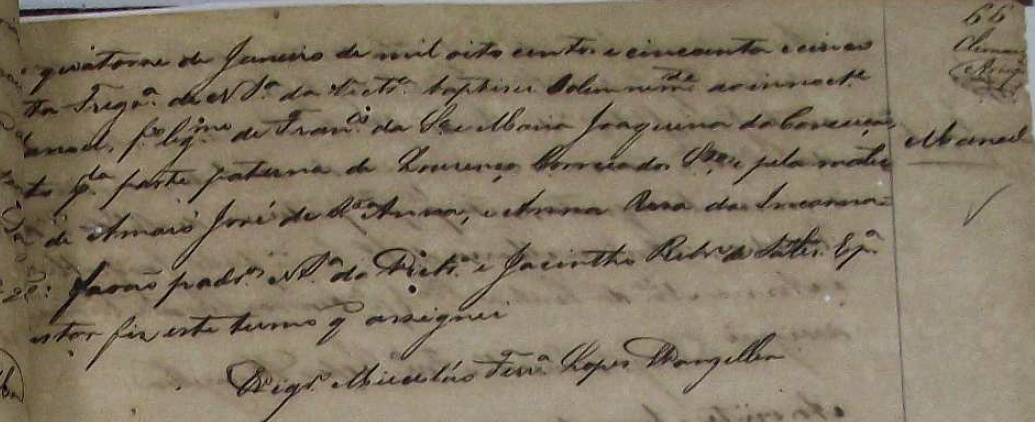 quatorse de Janeiro de mil oito centos e cincoenta e cinco
ta Fregª. de N. Sª. da Victª. baptisei Solemnemᵉ. ao innocᵗᵉ.
anoel, fº. legᵐᵒ. de Franᶜᵒ. da Sª. e Maria Joaquina da Conceição,
to pª. parte paterna de Lourenço Correa dos Sᵗᵒˢ, e pela mater
de Amaro José de Sᵗᵃ Anna, e Anna Rosa da Incarna-
forão padrºˢ. N. Sª. da Victª. e Jacintho Ribrº. de Sales. E pª.
estar fiz este termo q̃ assignei
Vigrº. Lopes
Manoel
66